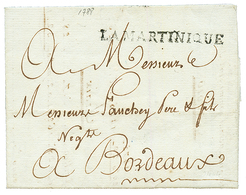 1788
LA MARTINIQUE
A Messieurs
Messieurs Pere & fils
Negts
a Bordeaux